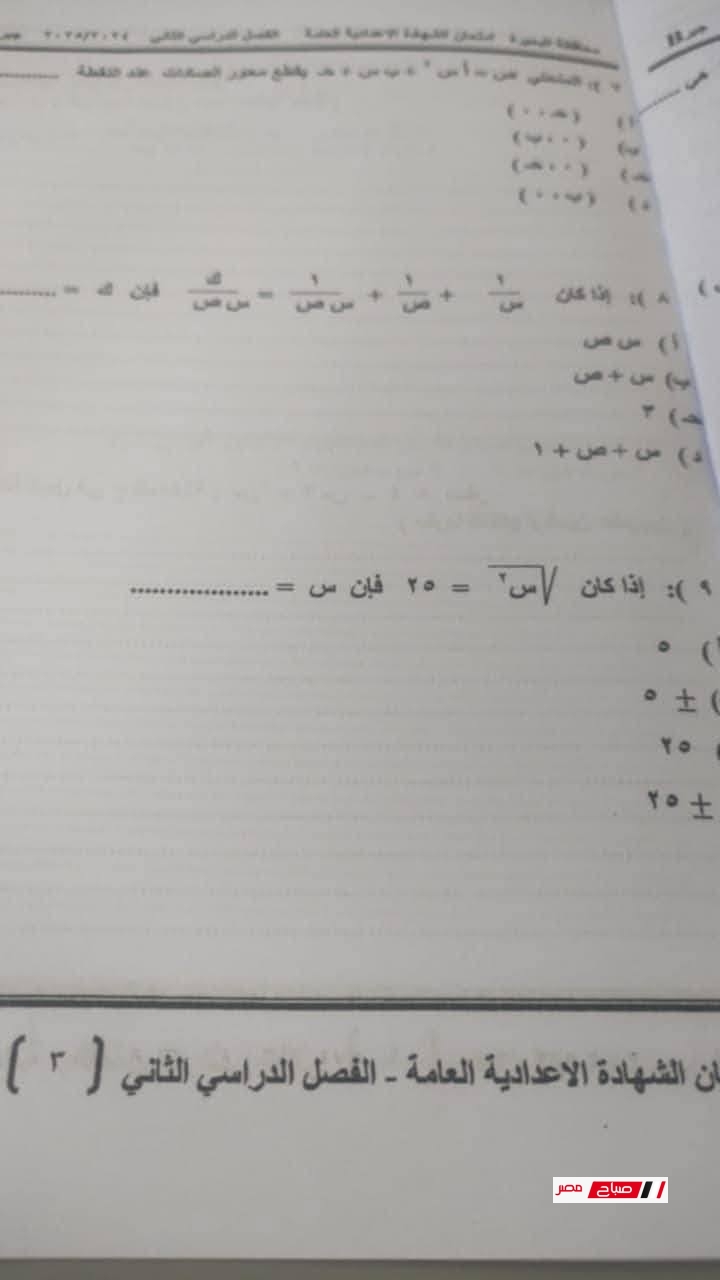 محافظة البحيرة امتحان الشهادة الاعدادية العامة الفصل الدراسي الثاني ٢٠٢٥/٢٠٢٤
٧ ): المنحنى ص = أ س٢ + ب س + جـ يقطع محور الصادات عند النقطة ..........
أ ) (جـ ، ٠)
ب) (٠ ، ب)
جـ) (٠ ، جـ)
د ) (ب ، ٠)
٨ ): إذا كان ١/س + ١/ص + ١/س ص = ك/س ص فإن ك = ..........
أ ) س ص
ب) س + ص
جـ ) ٣
د ) س + ص + ١
٩ ): إذا كان √س٢ = ٢٥ فإن س = ...................
) ٥
) ± ٥
٢٥
± ٢٥
ان الشهادة الاعدادية العامة - الفصل الدراسي الثاني ( ٣ )
صباح مصر